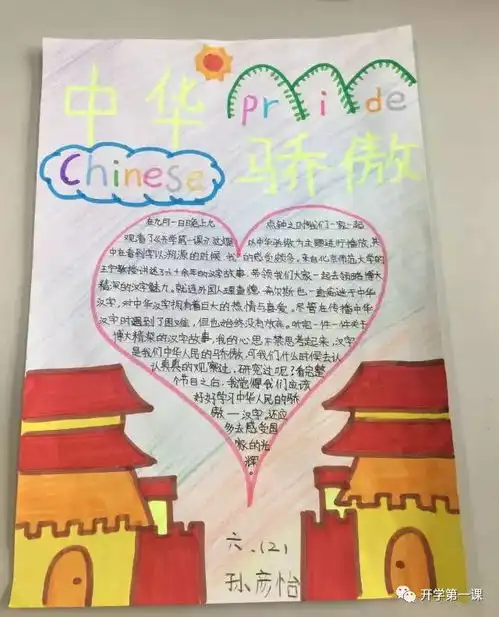 中华 pride
Chinese 骄傲
在九月一日晚上九 点钟之时我们一家一起
观看了《开学第一课》这期 以中华骄傲为主题进行播放,其
中在看到字以溯源的时候 我 的感受颇多。来自北京师范大学的
王宁教授讲述了六十余年的汉字故事,带领我们大家一起去领略博大
精深的汉字魅力,就连外国人理查德,希尔斯也一直痴迷于中华
汉字,对中华汉字拥有着巨大的热情与喜爱。尽管在传播中华
汉字时遇到了困难,但也始终没有放弃。听完一件一件关于
博大精深的汉字故事,我的心思不禁思考起来,汉字
是我们中华人民的骄傲,可我们什么时候去认
认真真的观察过,研究过呢?看完整
个节目之后,我觉得我们应该
好好学习中华人民的骄
傲——汉字,还应
多去感受国
家的光
辉。
六.(2)
孙彦怡
开学第一课